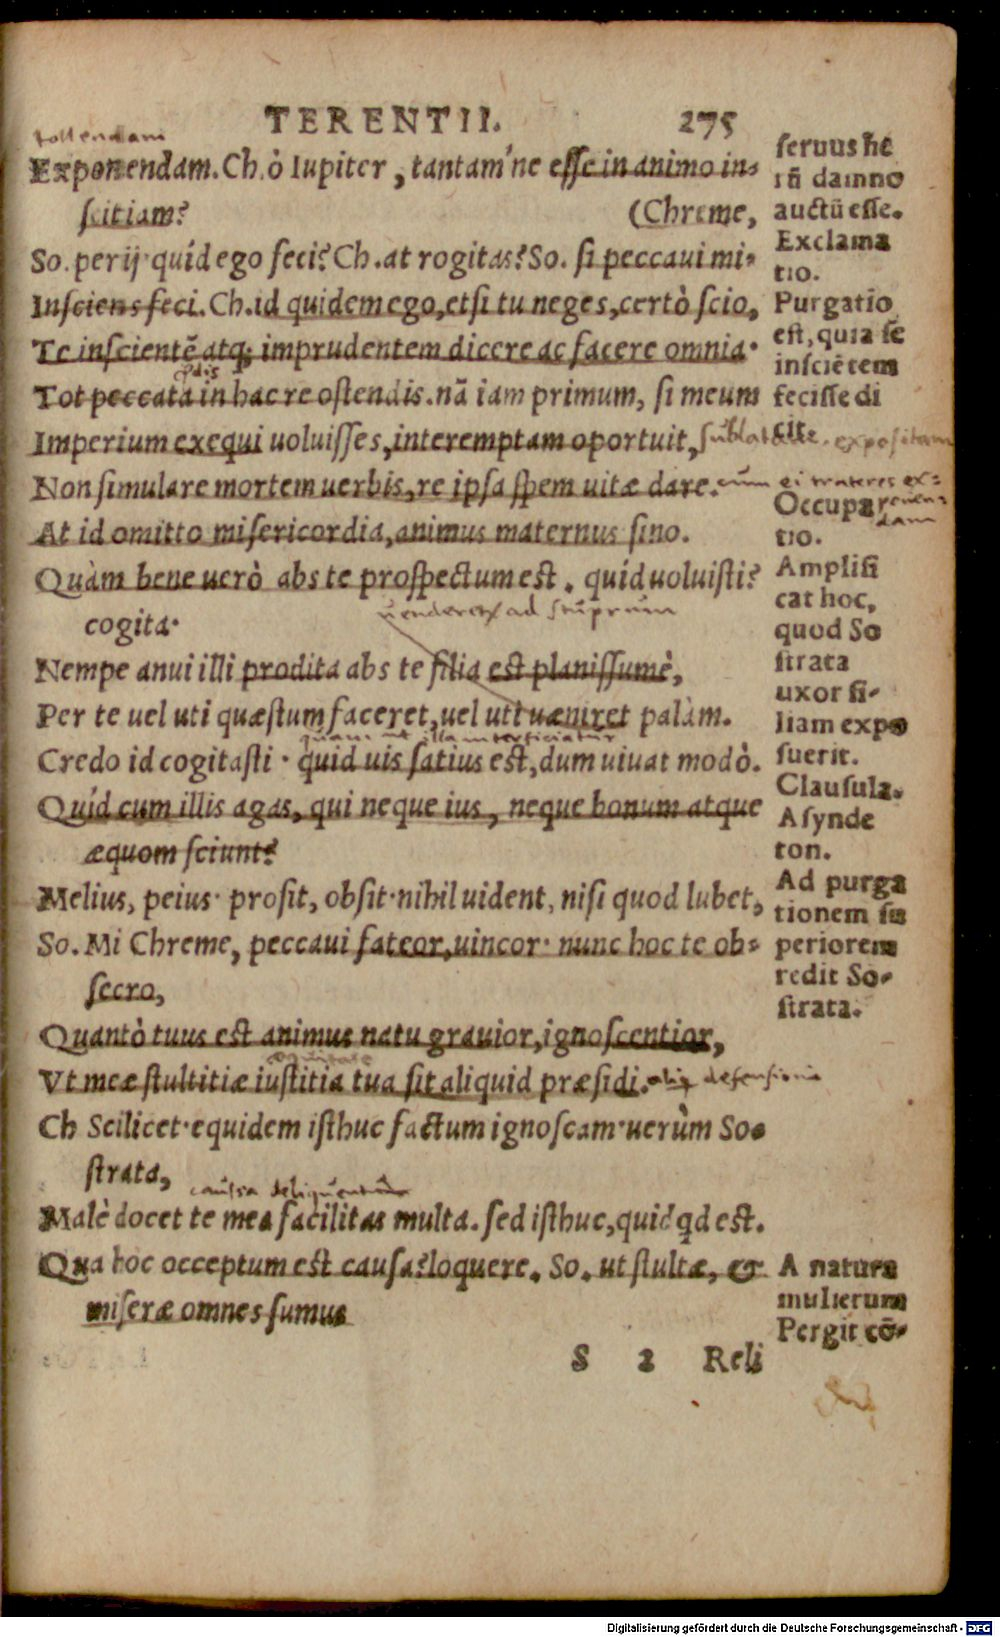 TERENTII. 275
tollendam
Exponendam. Ch. ò Iupiter, tantam'ne esse in animo in-
scitiam? (Chreme,
So. perij· quíd ego feci? Ch. at rogitas? So. si peccaui mi·
Insciens feci. Ch. id quidem ego, etsi tu neges, certò scio,
Te inscientẽ atq; imprudentem dicere ac facere omnia·
Tot peccata in hac re ostendis. nã iam primum, si meum
Imperium exequi uoluisses, interemptam oportuit,
Non simulare mortem uerbis, re ipsa spem uitæ dare.
At id omitto misericordia, animus maternus sino.
Quàm bene uerò abs te prospectum est. quid uoluisti?
cogita·
uenderet ad stuprum
Nempe anui illi prodita abs te filia est planissumè,
Per te uel uti quæstum faceret, uel uti uæniret palàm.
quam ut illa interficiatur
Credo id cogitasti · quid uis satius est, dum uiuat modò.
Quíd cum illis agas, qui neque ius, neque bonum atque
æquom sciunt?
Melius, peius· prosit, obsit· nihil uident, nisi quod lubet,
So. Mi Chreme, peccaui fateor, uincor· nunc hoc te ob-
secro,
Quantò tuus est animus natu grauior, ignoscentior,
Vt meæ stultitiæ iustitia tua sit aliquid præsidi. defensionis
Ch Scilicet· equidem isthuc factum ignoscam· uerùm So-
strata,
caussa
Malè docet te mea facilitas multa. sed isthuc, quid qd est.
Qua hoc occeptum est causa? loquere. So. ut stultæ, &
miseræ omnes sumus
S 2 Reli
seruus he
rũ damno
auctũ esse.
Exclama
tio.
Purgatio
est, quia se
insciẽtem
fecisse di
cit. expositam
Occupa
tio.
Amplifi
cat hoc,
quod So
strata
uxor fi-
liam expo
suerit.
Clausula.
Asynde
ton.
Ad purga
tionem su
periorem
redit So-
strata.
A natura
mulierum
Pergit cõ-
Digitalisierung gefördert durch die Deutsche Forschungsgemeinschaft - DFG